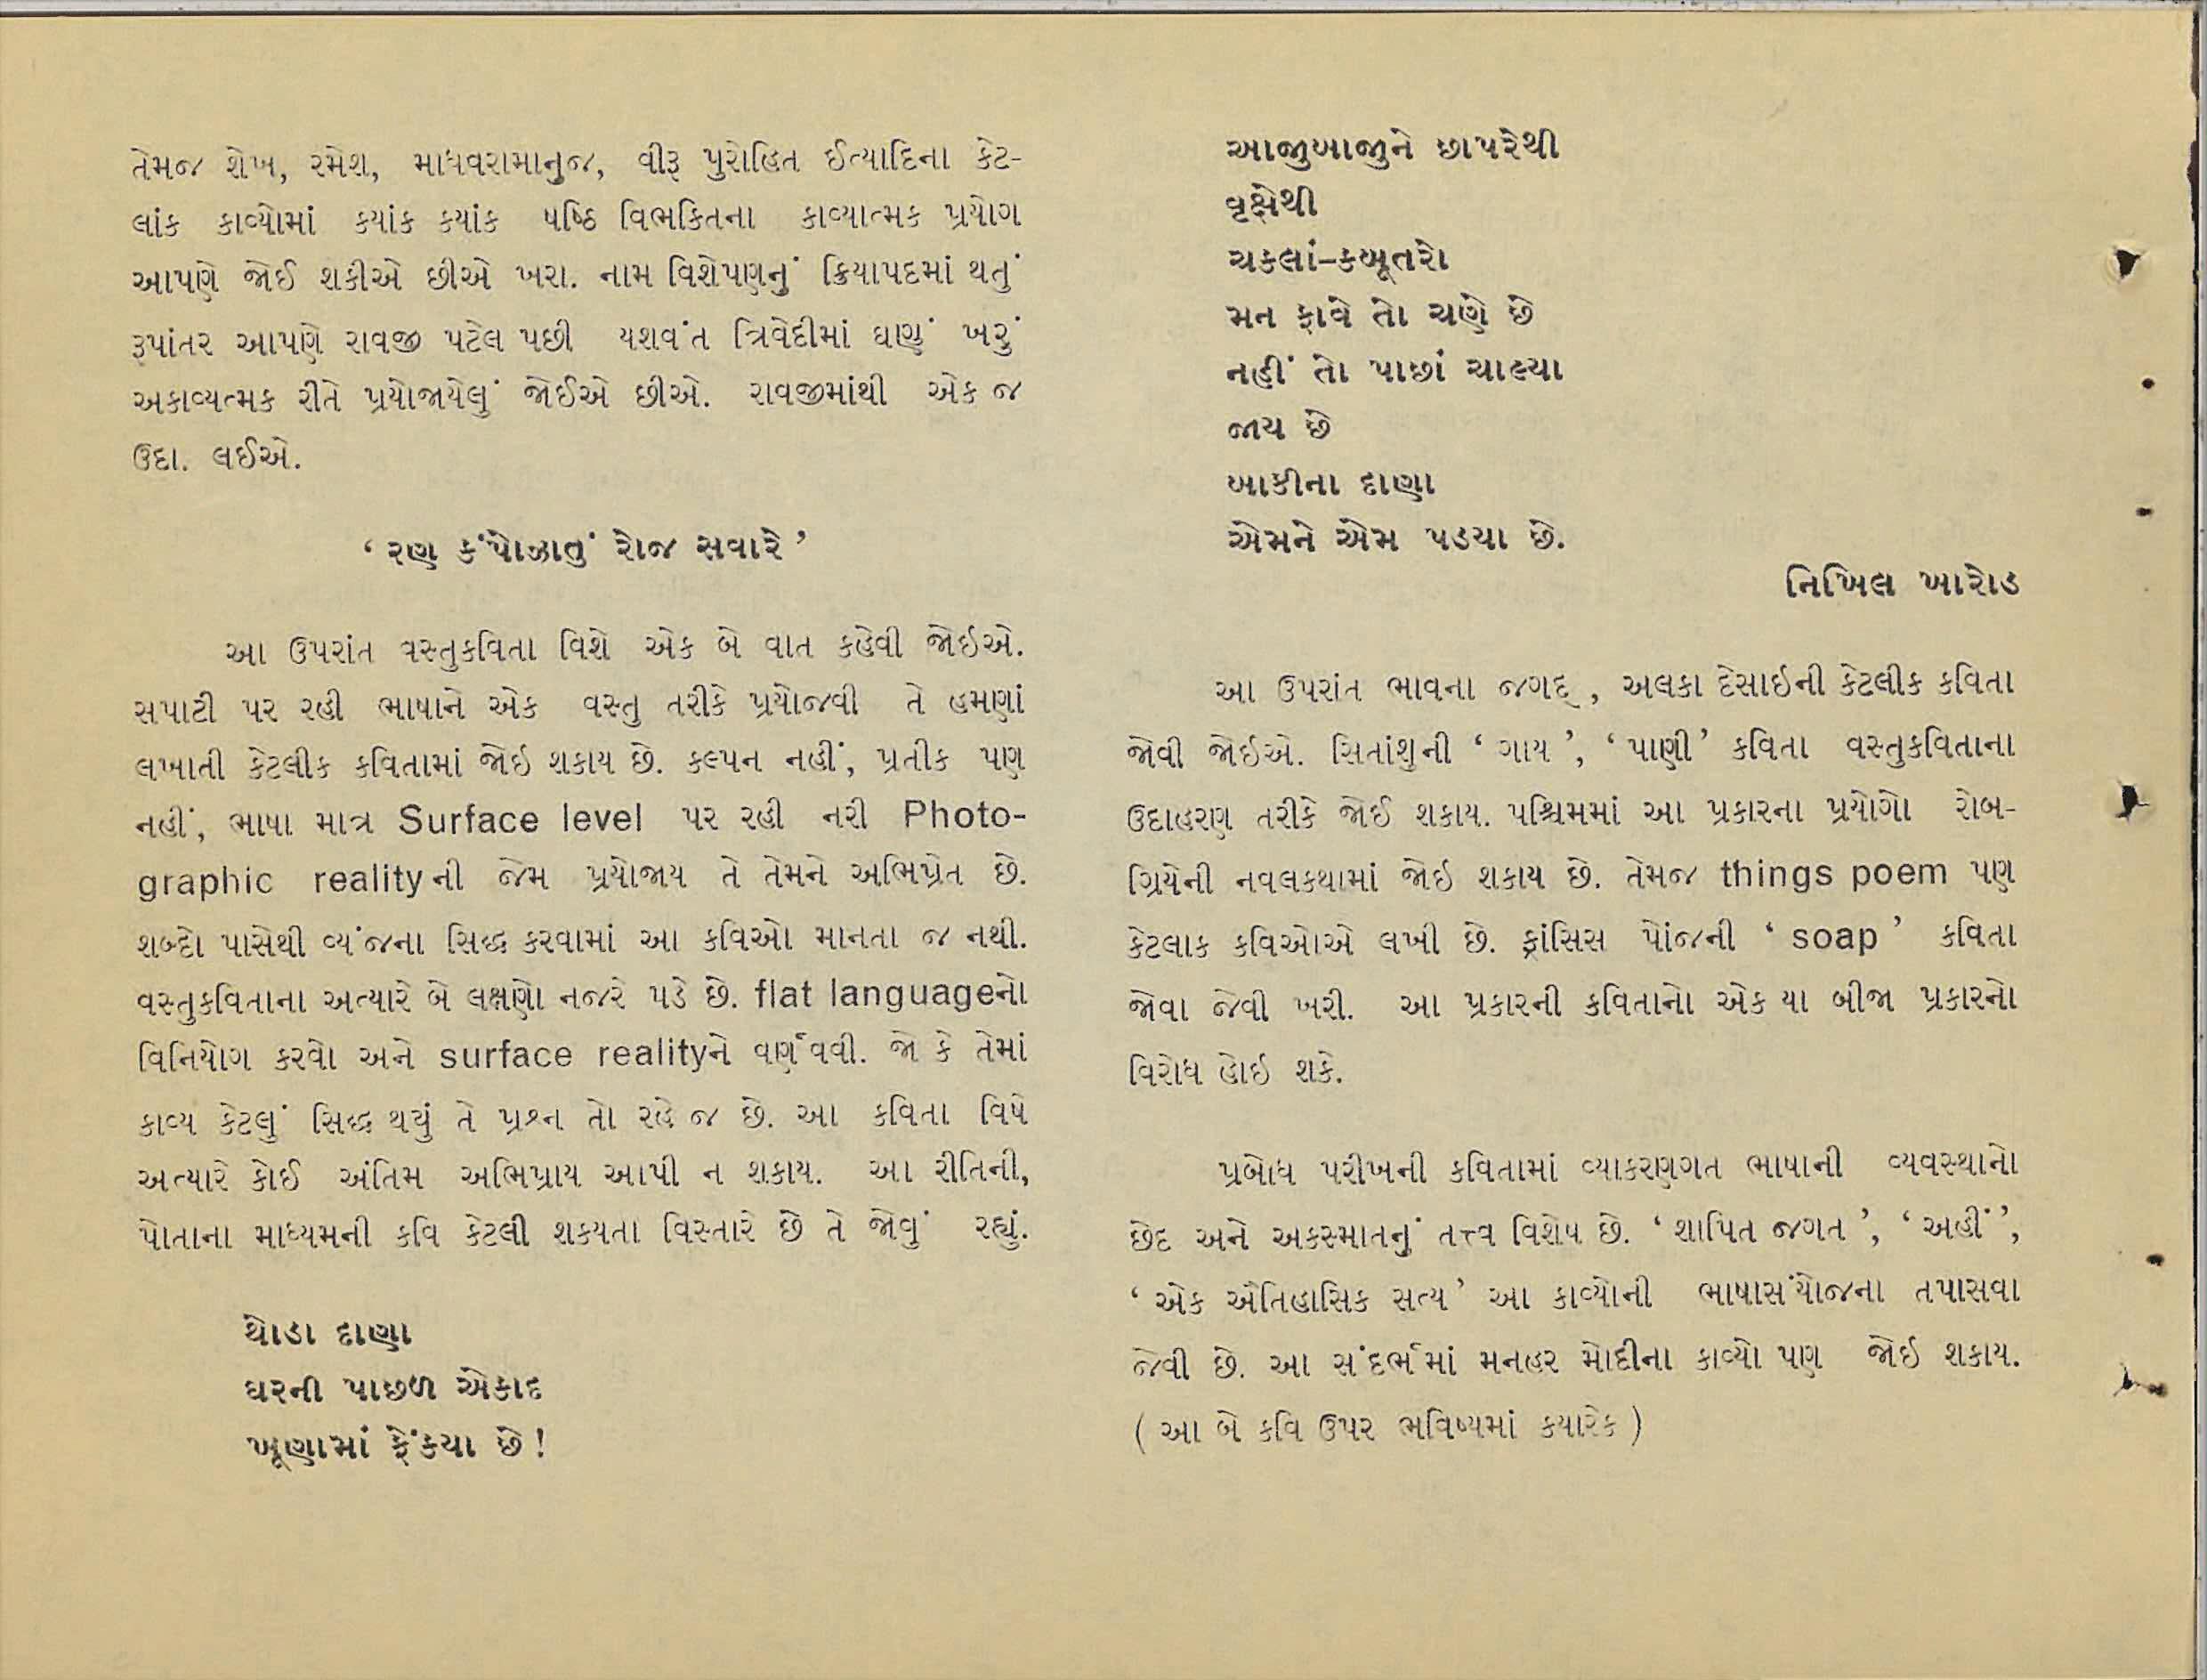 તેમજ શેખ, રમેશ, માધવરામાનુજ, વીરૂ પુરોહિત ઈત્યાદિના કેટ-
લાંક કાવ્યોમાં કયાંક કયાંક ષષ્ઠિ વિભકિતના કાવ્યાત્મક પ્રયોગ
આપણે જોઈ શકીએ છીએ ખરા. નામ વિશેષણનું ક્રિયાપદમાં થતું
રૂપાંતર આપણે રાવજી પટેલ પછી યશવંત ત્રિવેદીમાં ઘણું ખરું
અકાવ્યત્મક રીતે પ્રયોજાયેલું જોઈએ છીએ. રાવજીમાંથી એક જ
ઉદા. લઈએ.
‘ રણ કંપોઝાતું રોજ સવારે ’
આ ઉપરાંત વસ્તુકવિતા વિશે એક બે વાત કહેવી જોઈએ.
સપાટી પર રહી ભાષાને એક વસ્તુ તરીકે પ્રયોજવી તે હમણાં
લખાતી કેટલીક કવિતામાં જોઇ શકાય છે. કલ્પન નહીં, પ્રતીક પણ
નહીં, ભાષા માત્ર Surface level પર રહી નરી Photo-
graphic reality ની જેમ પ્રયોજાય તે તેમને અભિપ્રેત છે.
શબ્દો પાસેથી વ્યંજના સિદ્ધ કરવામાં આ કવિઓ માનતા જ નથી.
વસ્તુકવિતાના અત્યારે બે લક્ષણો નજરે પડે છે. flat languageનો
વિનિયોગ કરવો અને surface realityને વર્ણવવી. જો કે તેમાં
કાવ્ય કેટલું સિદ્ધ થયું તે પ્રશ્ન તો રહે જ છે. આ કવિતા વિષે
અત્યારે કોઈ અંતિમ અભિપ્રાય આપી ન શકાય. આ રીતિની,
પોતાના માધ્યમની કવિ કેટલી શકયતા વિસ્તારે છે તે જોવું રહ્યું.
થોડા દાણા
ઘરની પાછળ એકાદ
ખૂણામાં ફેંકયા છે !
આજુબાજુને છાપરેથી
વૃક્ષેથી
ચકલાં–કબૂતરો
મન ફાવે તો ચણે છે
નહીં તો પાછાં ચાલ્યા
જાય છે
બાકીના દાણા
એમને એમ પડયા છે.
નિખિલ ખારોડ
આ ઉપરાંત ભાવના જગદ્, અલકા દેસાઇની કેટલીક કવિતા
જોવી જોઈએ. સિતાંશુની ‘ ગાય ’, ‘ પાણી ’ કવિતા વસ્તુકવિતાના
ઉદાહરણ તરીકે જોઈ શકાય. પશ્ચિમમાં આ પ્રકારના પ્રયોગો રોબ-
ગ્રિયેની નવલકથામાં જોઇ શકાય છે. તેમજ things poem પણ
કેટલાક કવિઓએ લખી છે. ફ્રાંસિસ પોંજની ‘ soap ’ કવિતા
જોવા જેવી ખરી. આ પ્રકારની કવિતાનો એક યા બીજા પ્રકારનો
વિરોધ હોઇ શકે.
પ્રબોધ પરીખની કવિતામાં વ્યાકરણગત ભાષાની વ્યવસ્થાનો
છેદ અને અકસ્માતનું તત્ત્વ વિશેષ છે. ‘ શાપિત જગત ’, ‘ અહીં ’,
‘ એક ઐતિહાસિક સત્ય ’ આ કાવ્યોની ભાષાસંયોજના તપાસવા
જેવી છે. આ સંદર્ભમાં મનહર મોદીના કાવ્યો પણ જોઇ શકાય.
( આ બે કવિ ઉપર ભવિષ્યમાં કયારેક )